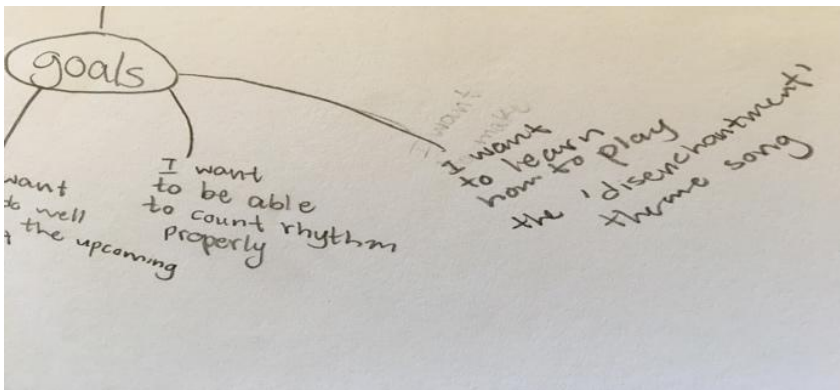 goals
want
to well
the upcoming
I want
to be able
to count rhythm
properly
I want
make
I want
to learn
how to play
the 'disenchantment'
theme song